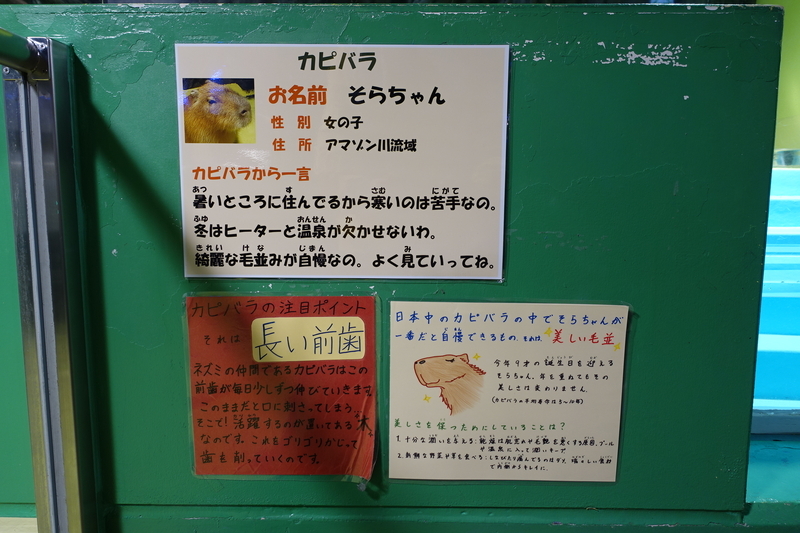 カピバラ
お名前 そらちゃん
性別 女の子
住所 アマゾン川流域
カピバラから一言
暑いところに住んでるから寒いのは苦手なの。
冬はヒーターと温泉が欠かせないわ。
綺麗な毛並みが自慢なの。よく見ていってね。
カピバラの注目ポイント
それは 長い前歯
ネズミの仲間であるカピバラはこの
前歯が毎日少しずつ伸びていきます。
このままだと口に刺さってしまう、
そこで!活躍するのが置いてある木
なのです。これをゴリゴリかじって
歯を削っていくのです。
日本中のカピバラの中でそらちゃんが
一番だと自慢できるもの、それは、美しい毛並
今年9才の誕生日を迎える
そらちゃん。年を重ねてもその
美しさは変わりません。
(カピバラの平均寿命は5~10年)
美しさを保つためにしていることは?
1.十分な潤いを与える:乾燥は肌荒れや毛艶を悪くする原因。プール
や温泉に入って潤いキープ
2.新鮮な野菜や草を食べる:
で内側からキレイに